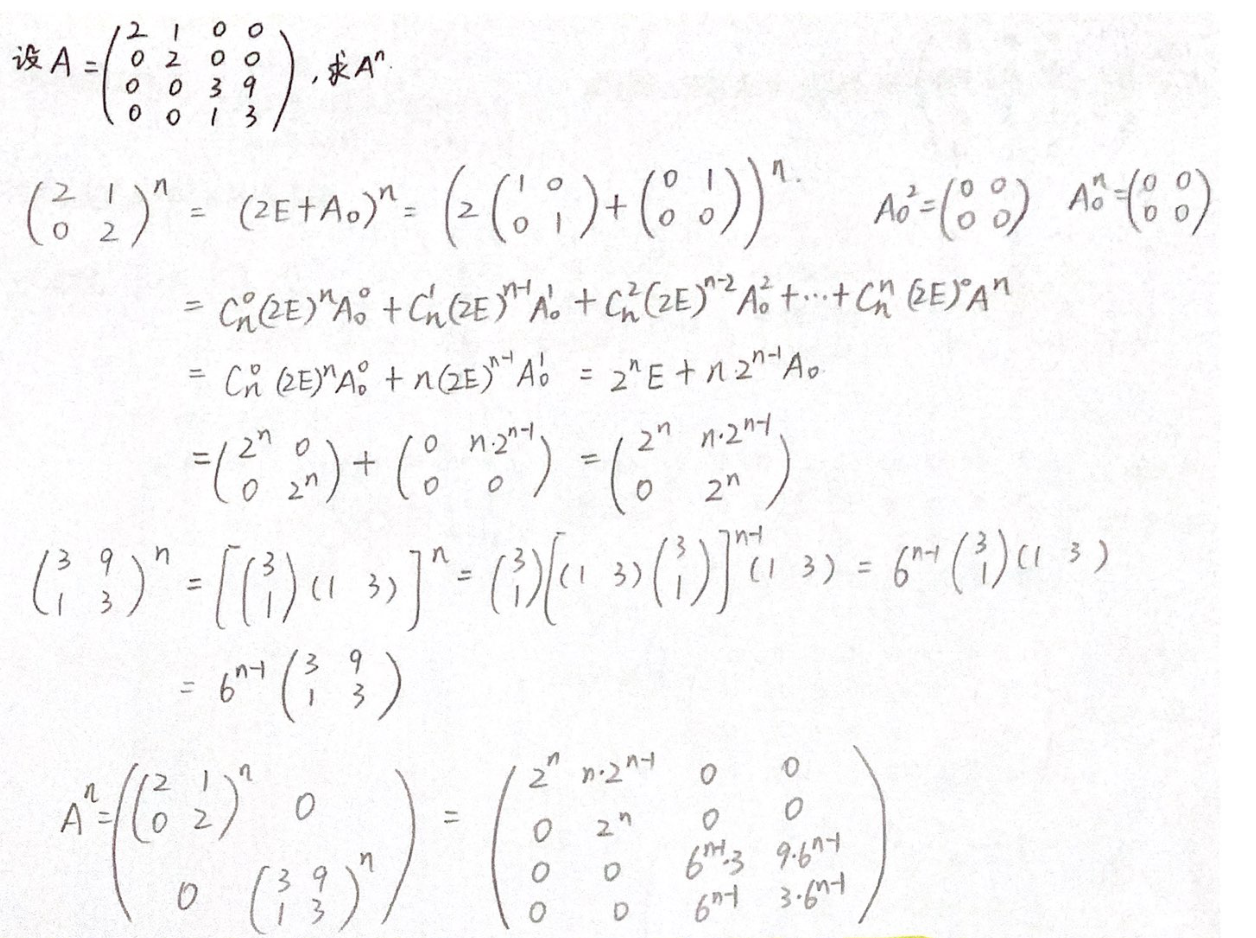 设 A = \begin{pmatrix} 2 & 1 & 0 & 0 \\ 0 & 2 & 0 & 0 \\ 0 & 0 & 3 & 9 \\ 0 & 0 & 1 & 3 \end{pmatrix}, 求 A^n.
\begin{pmatrix} 2 & 1 \\ 0 & 2 \end{pmatrix}^n = (2E+A_0)^n = \left(2\begin{pmatrix} 1 & 0 \\ 0 & 1 \end{pmatrix}+\begin{pmatrix} 0 & 1 \\ 0 & 0 \end{pmatrix}\right)^n. A_0^2=\begin{pmatrix} 0 & 0 \\ 0 & 0 \end{pmatrix} A_0^n=\begin{pmatrix} 0 & 0 \\ 0 & 0 \end{pmatrix}
= C_n^0(2E)^nA_0^0 + C_n^1(2E)^{n-1}A_0^1 + C_n^2(2E)^{n-2}A_0^2 + \cdots + C_n^n(2E)^0A^n
= C_n^0(2E)^nA_0^0 + n(2E)^{n-1}A_0^1 = 2^nE + n·2^{n-1}A_0.
= \begin{pmatrix} 2^n & 0 \\ 0 & 2^n \end{pmatrix} + \begin{pmatrix} 0 & n·2^{n-1} \\ 0 & 0 \end{pmatrix} = \begin{pmatrix} 2^n & n·2^{n-1} \\ 0 & 2^n \end{pmatrix}
\begin{pmatrix} 3 & 9 \\ 1 & 3 \end{pmatrix}^n = \left[\begin{pmatrix} 3 \\ 1 \end{pmatrix}(1 \ 3)\right]^n = \begin{pmatrix} 3 \\ 1 \end{pmatrix}\left[(1 \ 3)\begin{pmatrix} 3 \\ 1 \end{pmatrix}\right]^{n-1}(1 \ 3) = 6^{n-1}\begin{pmatrix} 3 \\ 1 \end{pmatrix}(1 \ 3)
= 6^{n-1}\begin{pmatrix} 3 & 9 \\ 1 & 3 \end{pmatrix}
A^n = \begin{pmatrix} \begin{pmatrix} 2 & 1 \\ 0 & 2 \end{pmatrix}^n & 0 \\ 0 & \begin{pmatrix} 3 & 9 \\ 1 & 3 \end{pmatrix}^n \end{pmatrix} = \begin{pmatrix} 2^n & n·2^{n-1} & 0 & 0 \\ 0 & 2^n & 0 & 0 \\ 0 & 0 & 6^{n-1}·3 & 9·6^{n-1} \\ 0 & 0 & 6^{n-1} & 3·6^{n-1} \end{pmatrix}